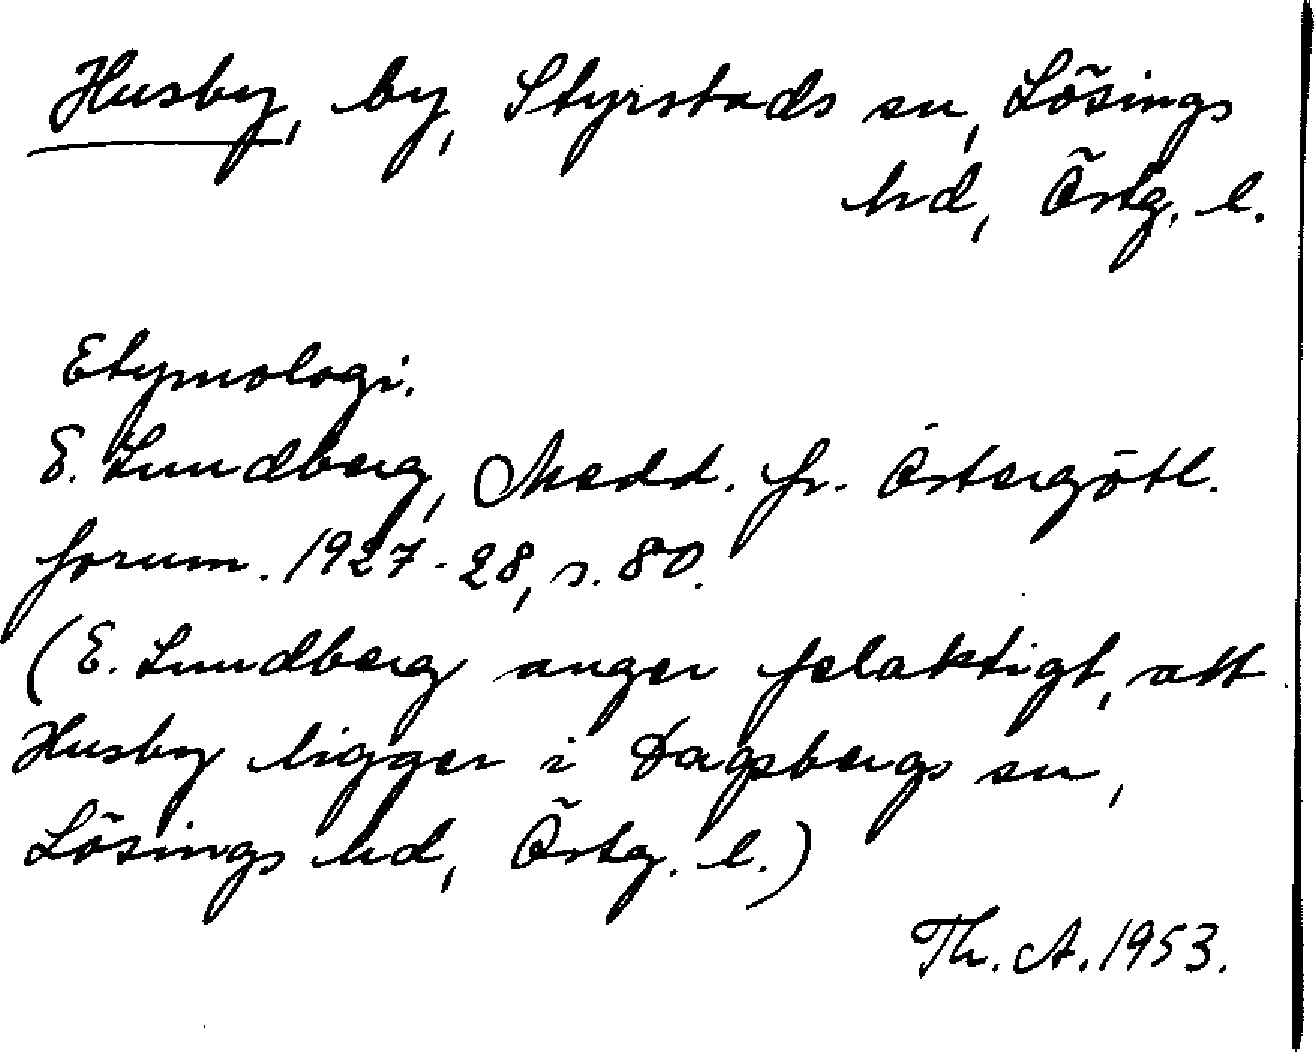 Husby, by, Styrstads sn, Lösings
hd, Östg. l.
Etymologi.
E. Lundberg, Medd. fr. Östergötl.
fornm. 1927-28, s. 80.
(E. Lundberg anger felaktigt, att
Husby ligger i Dagsbergs sn,
Lösings hd, Östg. l.)
Th. A. 1953.